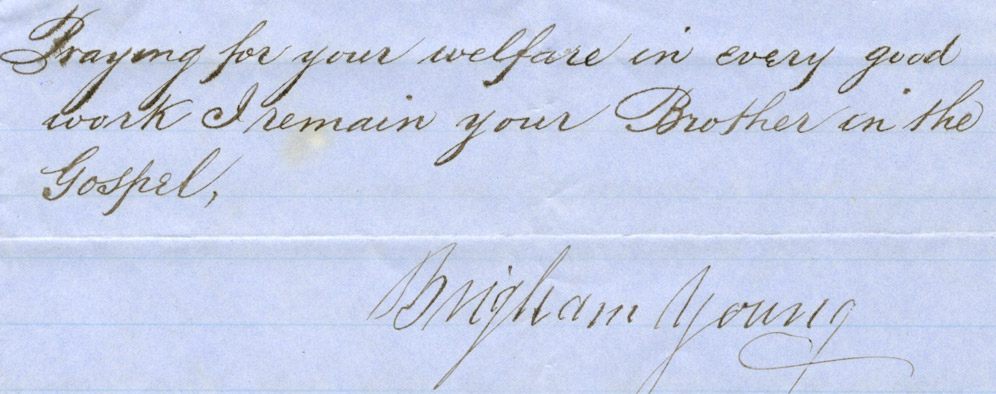 Praying for your welfare in every good
work I remain your Brother in the
Gospel,
Brigham Young